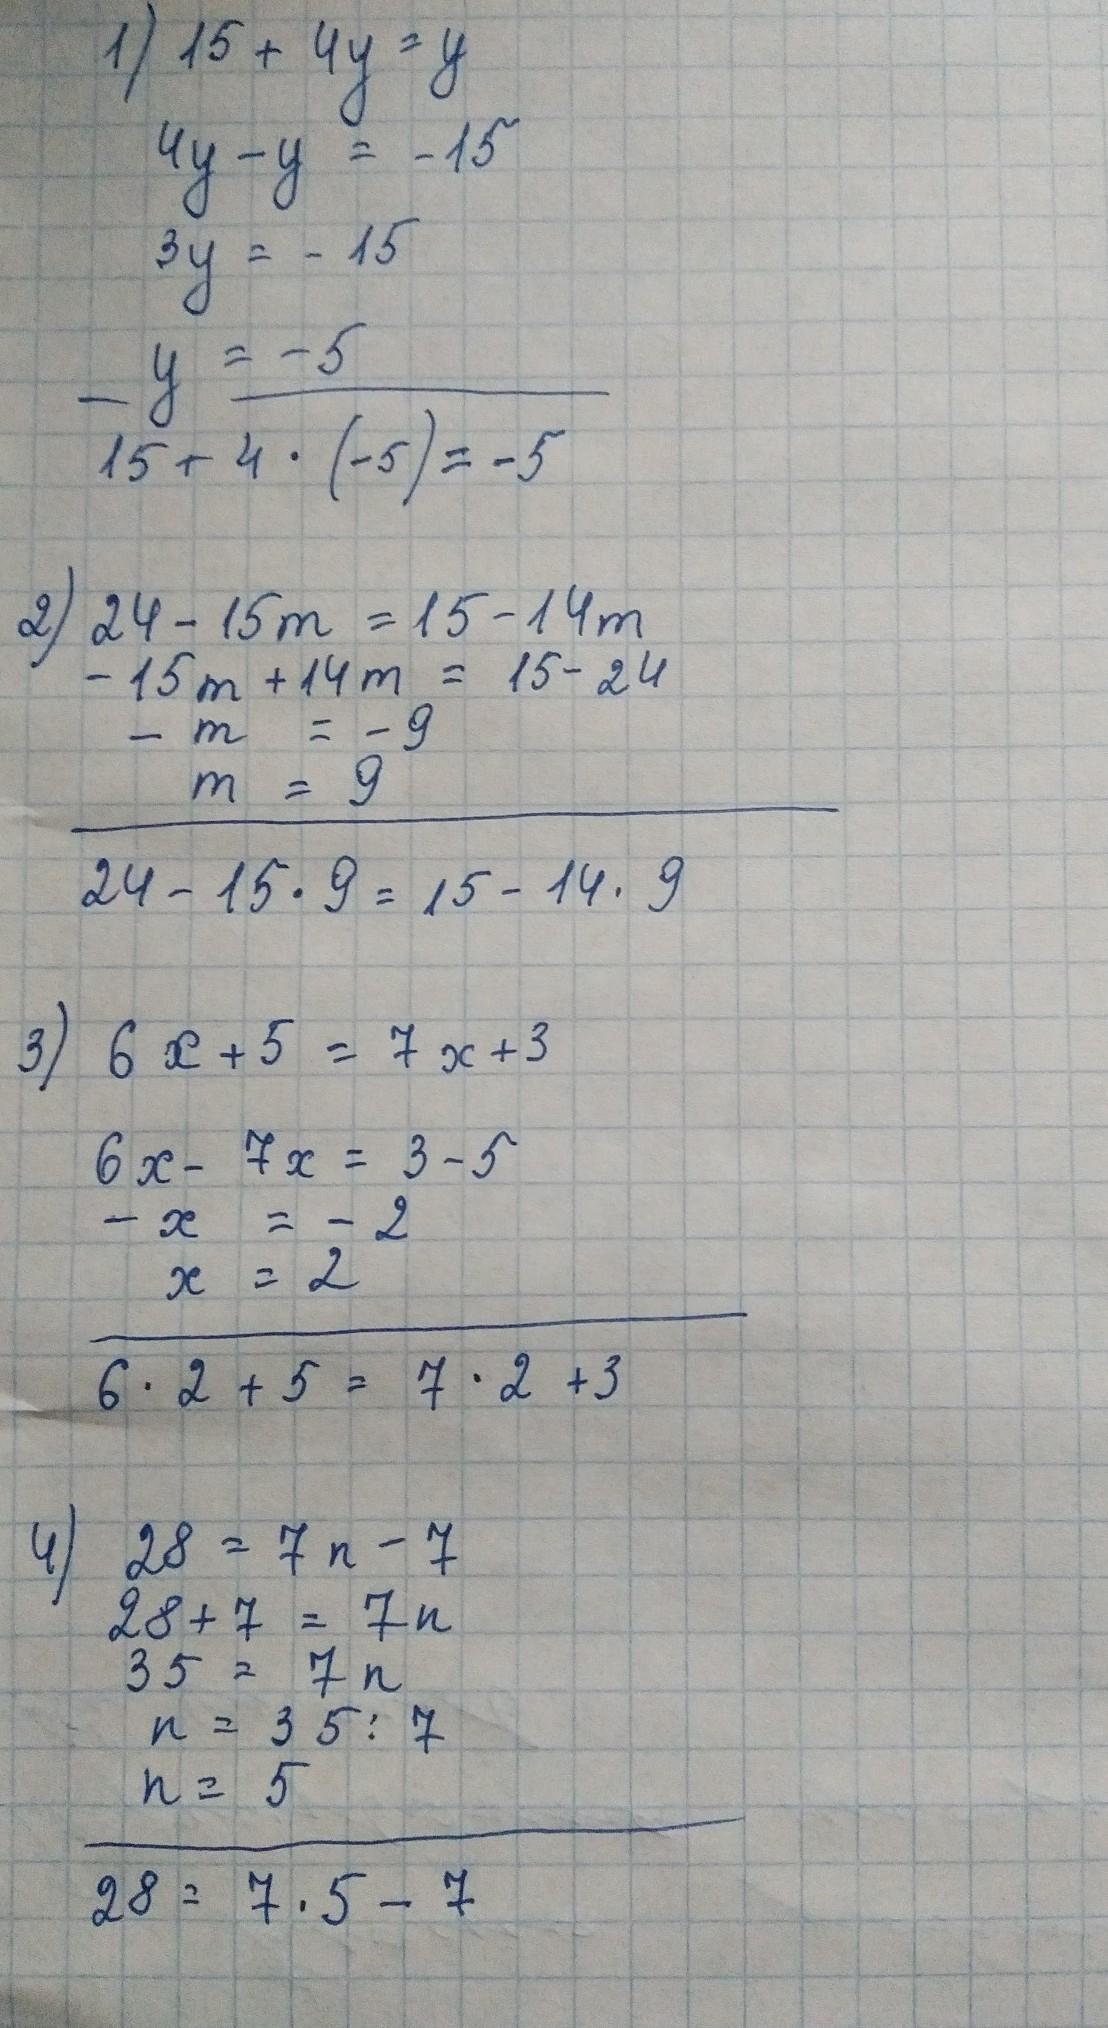 1) 15 + 4y = y
4y - y = -15
3y = -15
y = -5
15 + 4 · (-5) = -5
2) 24 - 15m = 15 - 14m
-15m + 14m = 15 - 24
- m = -9
m = 9
24 - 15 · 9 = 15 - 14 · 9
3) 6x + 5 = 7x + 3
6x - 7x = 3 - 5
- x = - 2
x = 2
6 · 2 + 5 = 7 · 2 + 3
4) 28 = 7n - 7
28 + 7 = 7n
35 = 7n
n = 35 : 7
n = 5
28 = 7 · 5 - 7